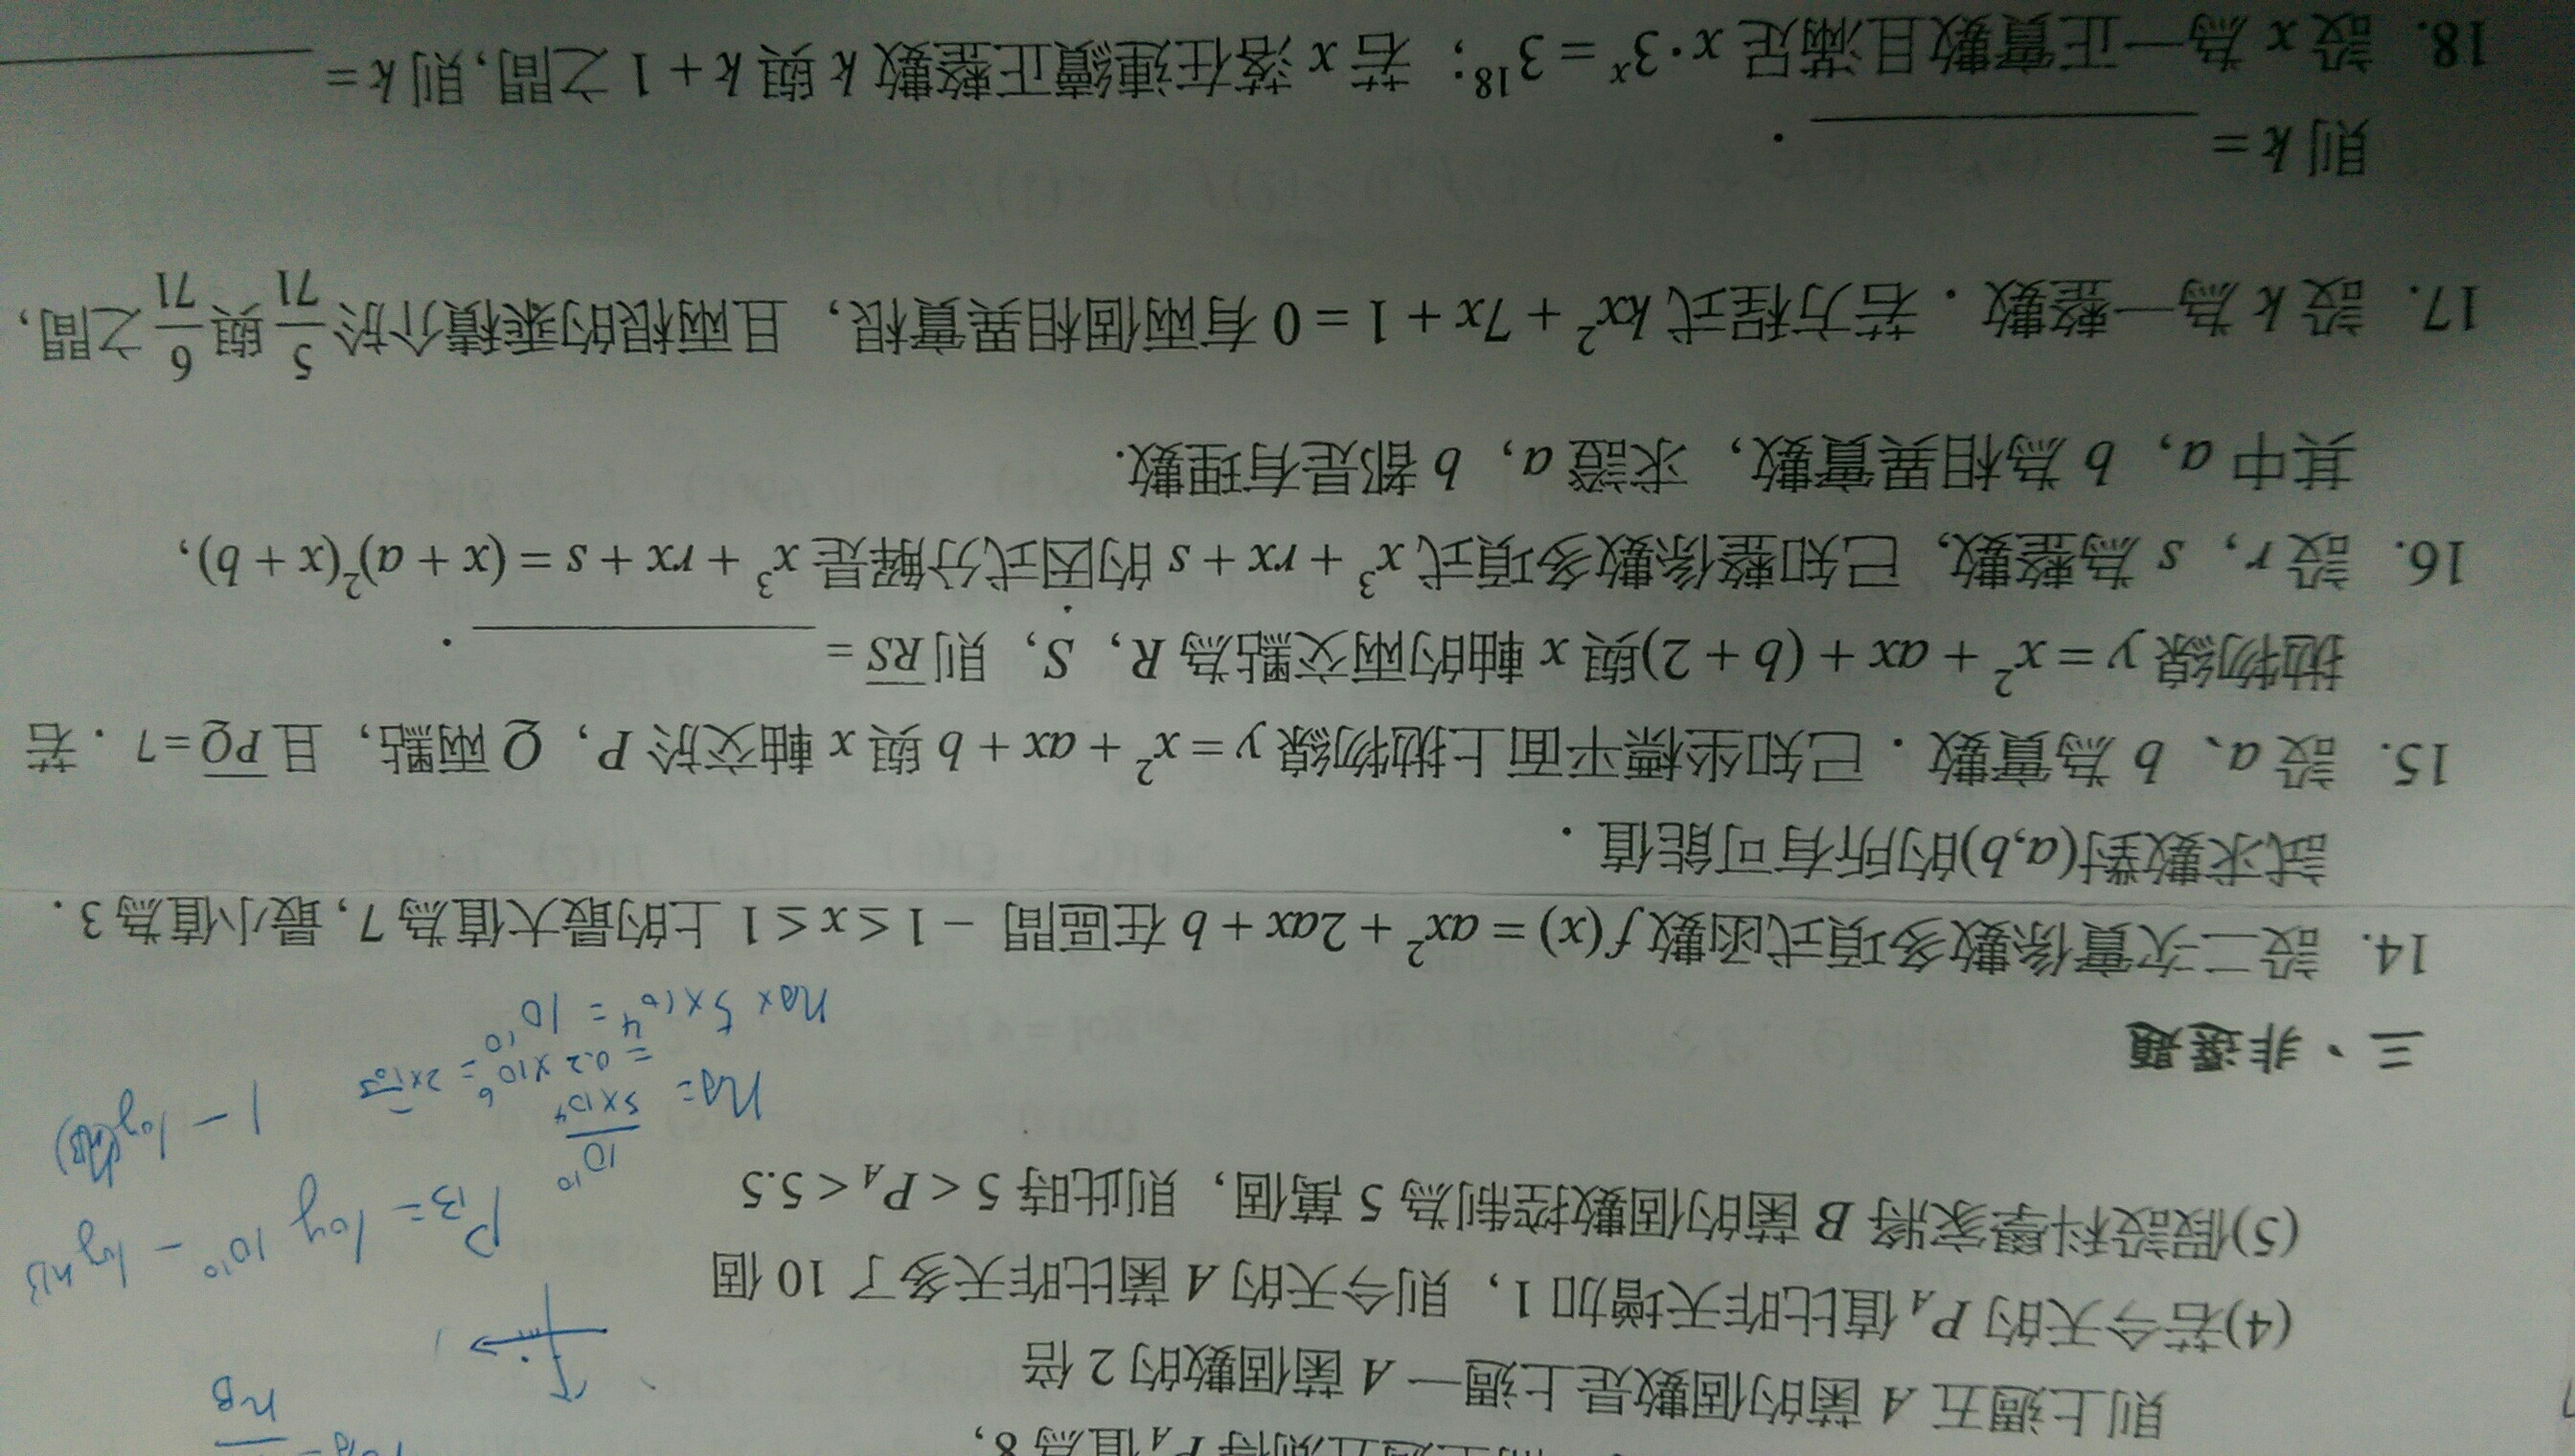 則上週五 A 菌的個數是上週一 A 菌個數的 2 倍
(4)若今天的 P_A 值比昨天增加 1，則今天的 A 菌比昨天多了 10 個
(5)假設科學家將 B 菌的個數控制為 5 萬個，則此時 5 < P_A < 5.5
n_B
P_B = log 10^10 - log n_B
1 - log(n_B)
n_a = 10^10 / 5×10^4
= 0.2 × 10^6 = 2×10^5
n_a × 5×10^4 = 10^10
三、非選題
14. 設二次實係數多項式函數 f(x) = ax² + 2ax + b 在區間 − 1 ≤ x ≤ 1 上的最大值為 7，最小值為 3．
試求數對(a,b)的所有可能值．
15. 設 a、b 為實數．已知坐標平面上拋物線 y = x² + ax + b 與 x 軸交於 P，Q 兩點，且 PQ = 7．若
拋物線 y = x² + ax + (b + 2)與 x 軸的兩交點為 R，S，則 RS = ________．
16. 設 r，s 為整數，已知整係數多項式 x³ + rx + s 的因式分解是 x³ + rx + s = (x + a)²(x + b)，
其中 a，b 為相異實數，求證 a，b 都是有理數.
17. 設 k 為一整數．若方程式 kx² + 7x + 1 = 0 有兩個相異實根，且兩根的乘積介於 5/71 與 6/71 之間，
則 k = ________．
18. 設 x 為一正實數且滿足 x·3^x = 3^18；若 x 落在連續正整數 k 與 k + 1 之間，則 k = ________